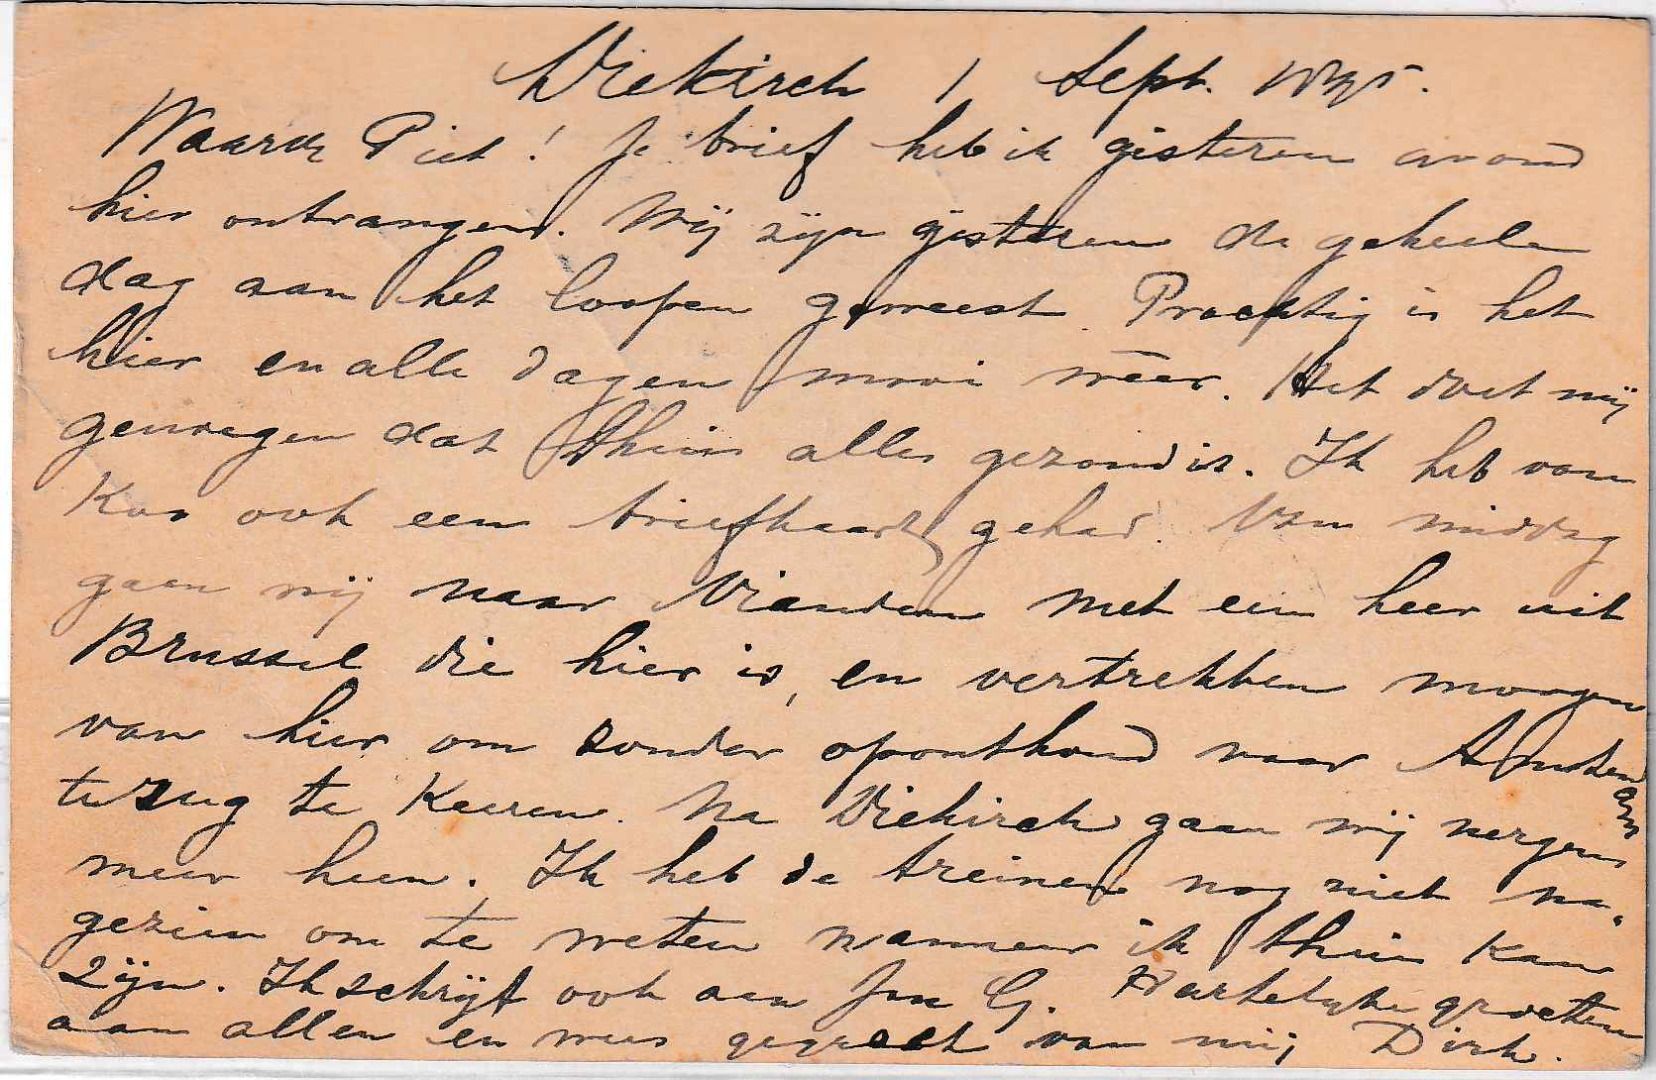 Diekirch 1 Sept. 1895.
Waarde Piet! Je brief heb ik gisteren avond
hier ontvangen. Wij zijn gisteren de geheele
dag aan het loopen geweest. Prachtig is het
hier en alle dagen mooi weer. Het doet mij
genoegen dat thuis alles gezond is. Ik heb van
Kos ook een briefkaart gehad. Van middag
gaan wij naar Vianden met een heer uit
Brussel die hier is, en vertrekken morgen
van hier om zonder oponthoud naar Amsterdam
terug te keeren. Na Diekirch gaan wij nergens
meer heen. Ik heb de treinen nog niet na-
gezien om te weten wanneer ik thuis kan
zijn. Ik schrijf ook aan G. Hartelijke groeten
aan allen en wees gegroet van mij Dirk.